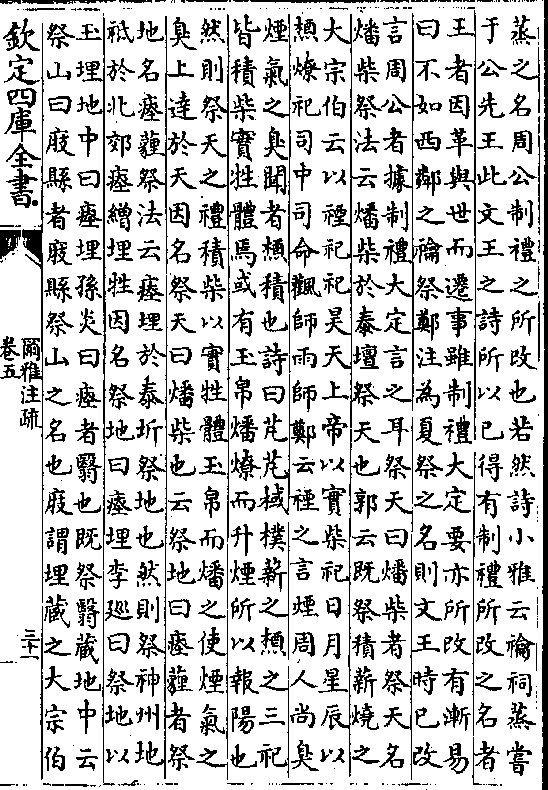 蒸之名周公制禮之所改也若然詩小雅云禴祠蒸嘗
于公先王此文王之詩所以已得有制禮所改之名者
王者因革與世而遷事雖制禮大定要亦所改有漸易
曰不如西鄰之禴祭鄭注為夏祭之名則文王時已改
言周公者據制禮大定言之耳祭天曰燔柴者祭天名
燔柴祭法云燔柴於泰壇祭天也郭云既祭積薪燒之
大宗伯云以禋祀祀昊天上帝以實柴祀日月星辰以
槱燎祀司中司命飌師雨師鄭云禋之言煙周人尚臭
煙氣之臭聞者槱積也詩曰芃芃棫樸薪之槱之三祀
皆積柴實牲體焉或有玉帛燔燎而升煙所以報陽也
然則祭天之禮積柴以實牲體玉帛而燔之使煙氣之
臭上達於天因名祭天曰燔柴也云祭地曰瘞薶者祭
地名瘞薶祭法云瘞埋於泰圻祭地也然則祭神州地
祗於北郊瘞繒埋牲因名祭地曰瘞埋李廵曰祭地以
玉埋地中曰瘞埋孫炎曰瘞者翳也既祭翳藏地中云
祭山曰庪縣者庪縣祭山之名也庪謂埋藏之大宗伯
欽定四庫全書
爾雅注疏
卷五
三十一